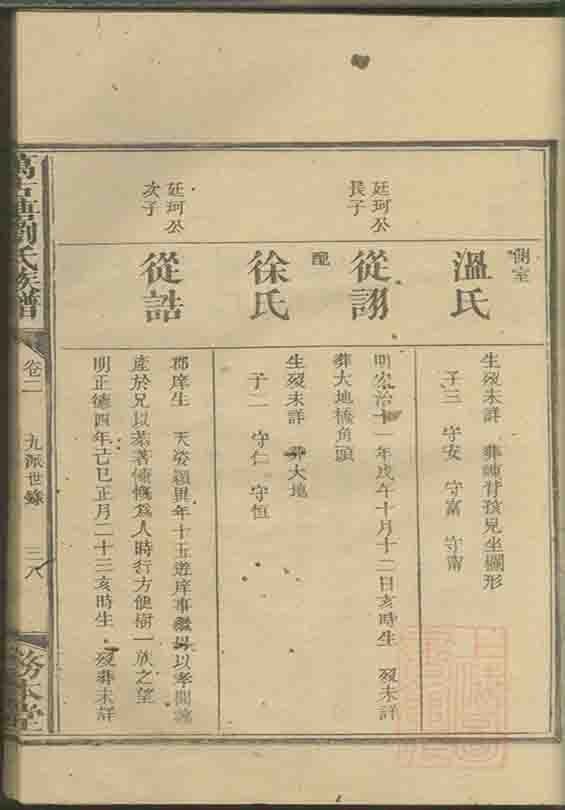 側室
溫氏
生歿未詳
子三 守安 守富 守甯
廷珂公
長子
從詡
明宏治十一年戊午十月十二日亥時生 歿未詳
葬大地橋角頭
配
徐氏
生歿未詳 葬大地
子二 守仁 守恒
廷珂公
次子
從誥
郡庠生 天姿穎異年十五遊庠事繼母以孝聞讓
產於兄以義著慷慨爲人時行方便樹一族之望
明正德四年己巳正月二十三亥時生 歿葬未詳
劉氏族譜
卷二
九派世錄
三八
務本堂